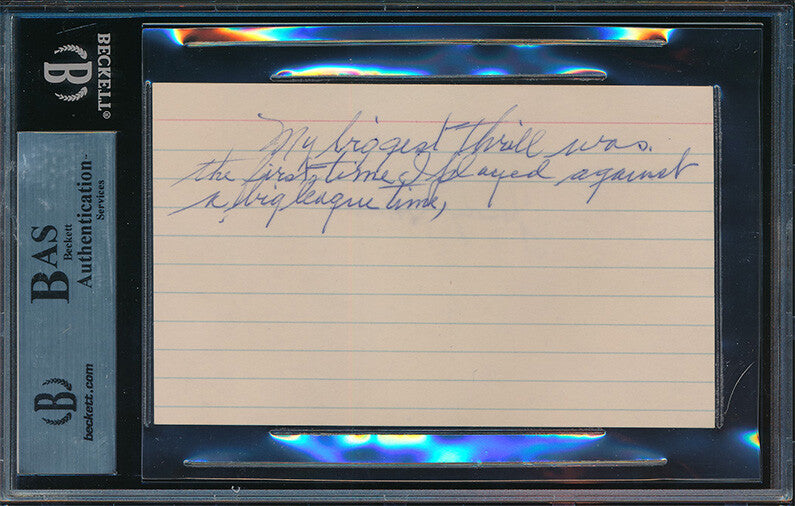 BECKETT®
B
BAS
Beckett
Authentication™
Services
B
beckett.com
My biggest thrill was.
the first time I played against
a big league time,